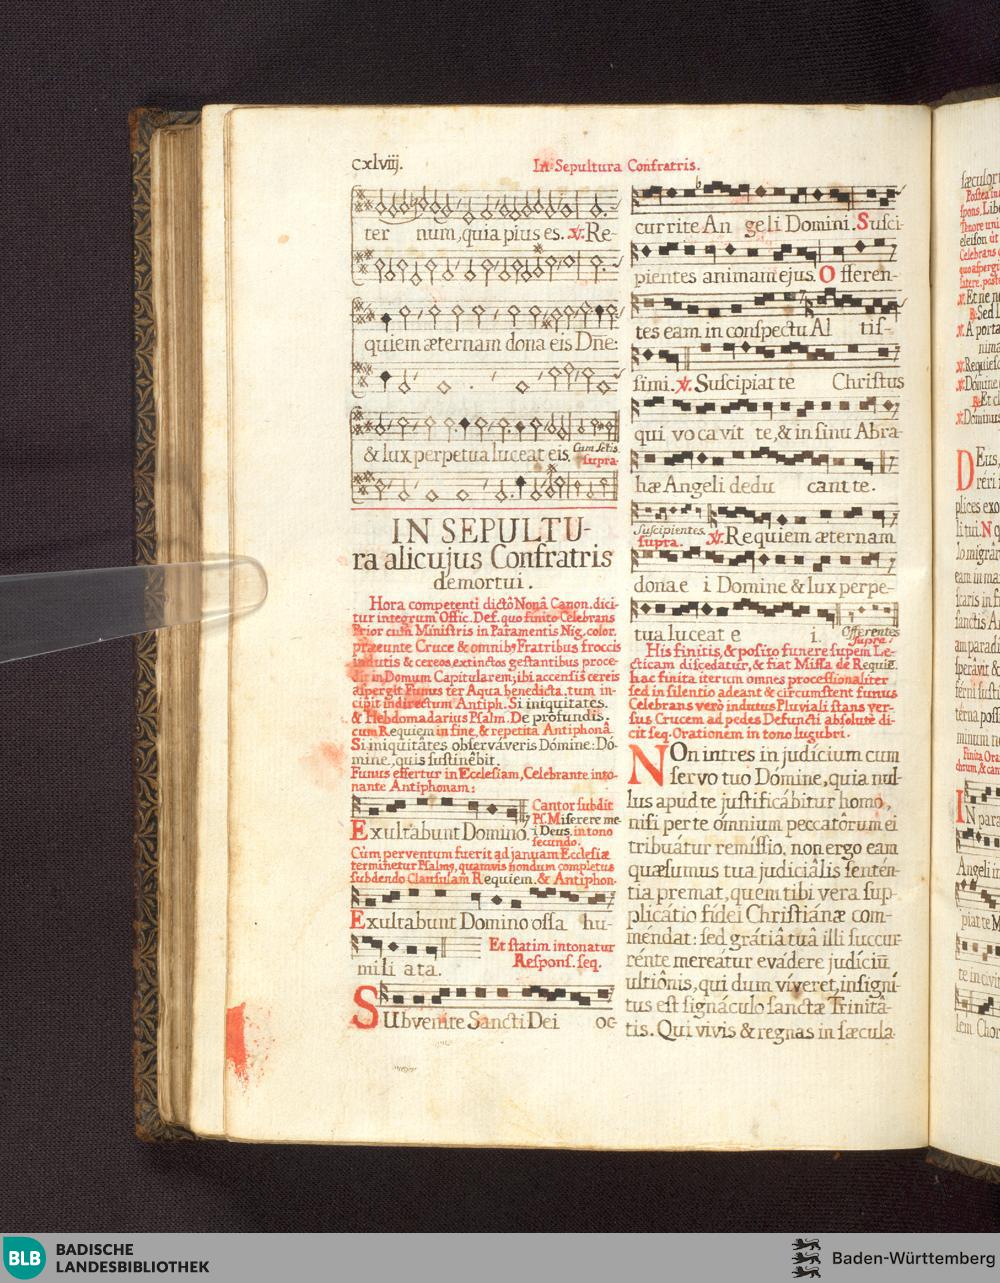 cxlviij.
In Sepultura Confratris.
ter num, quia pius es. ℣. Re-
quiem æternam dona eis Dñe:
& lux perpetua luceat eis. Cum Sctis
supra.
IN SEPULTU-
ra alicujus Confratris
demortui.
Hora competenti dictô Nonâ Canon. dici-
tur integrum Offic. Def. quo finito Celebrans
Prior cum Ministris in Paramentis Nig. color.
præeunte Cruce & omnibꝰ Fratribus froccis
indutis & cereos extinctos gestantibus proce-
dit in Domum Capitularem; ibi accensis cereis
aspergit Funus ter Aqua benedicta, tum in-
cipit indirectum Antiph. Si iniquitates.
& Hebdomadarius Psalm. De profundis.
cum Requiem in fine, & repetita Antiphonâ
Si iniquitâtes observáveris Dómine: Dó-
mine, quis sustinêbit.
Funus effertur in Ecclesiam, Celebrante into-
nante Antiphonam:
Cantor subdit
Ps. Miserere me-
Exultabunt Domino. i Deus. in tono
secundo.
Cùm perventum fuerit ad januam Ecclesiæ
terminetur Psalmꝰ, quamvis nondum completus
subdendo Clausulam Requiem. & Antiphon.
Exultabunt Domino ossa hu-
Et statim intonatur
mili ata. Respons. seq.
SUbvenite Sancti Dei oc-
currite An geli Domini. Susci-
pientes animam ejus. Offeren-
tes eam in conspectu Al tis-
simi. ℣. Suscipiat te Christus
qui vocavit te, & in sinu Abra-
hæ Angeli dedu cant te.
Suscipientes
supra. ℣. Requiem æternam
dona e i Domine & lux perpe-
tua luceat e i. Offerentes
supra.
His finitis, & posito funere supem Le-
cticam discedatur, & fiat Missa de Requie.
hac finita iterum omnes processionaliter
sed in silentio adeant & circumstent funus
Celebrans verò indutus Pluviali stans ver-
sus Crucem ad pedes Defuncti absolute di-
cit seq. Orationem in tono lugubri.
NOn intres in judícium cum
servo tuo Dómine, quia nul-
lus apud te justificábitur homo,
nisi per te ómnium peccatôrum ei
tribuátur remíssio, non ergo eam
quæsumus tua judiciâlis senten-
tia premat, quem tibi vera sup-
plicátio fídei Christiánæ com-
méndat: sed grátiâ tuâ illi succur-
rénte mereátur evádere judíciũ
ultiônis, qui dum víveret, insigní-
tus est signáculo sanctæ Trinitâ-
tis. Qui vivis & regnas in sæcula
BLB
BADISCHE
LANDESBIBLIOTHEK
Baden-Württemberg